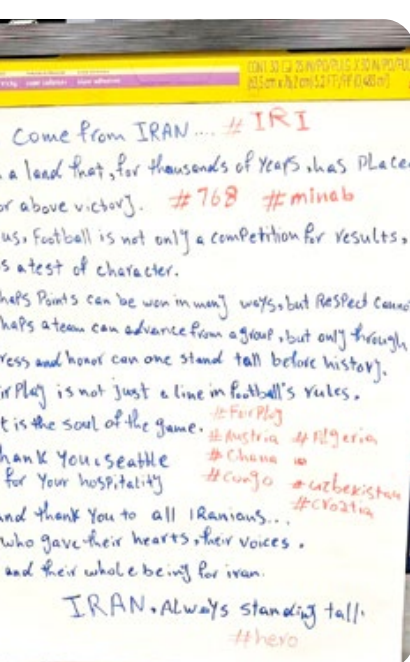 CONT. 30 (2' 25 IN/PO/PULG X 30 IN/PO/PUL
(63,5 cm x 76,2 cm) 5.2 FT²/PI² (0,483 m²)
Come from IRAN.... #IRI
a land that, for thousands of years, has Placed
or above victory. #768 #minab
us, Football is not only a competition for results,
s a test of character.
haps Points can be won in many ways, but Respect canno
haps a team can advance from a group, but only through
ress and honor can one stand tall before history.
ir Play is not just a line in football's rules.
t is the soul of the game. #FairPlay
#Austria #Algeria
hank You, Seattle #Ghana
for Your hospitality #Congo #uzbekistan
#Croatia
and thank You to all IRanians...
who gave their hearts, their voices,
and their whole being for iran.
IRAN, Always standing tall.
#hero